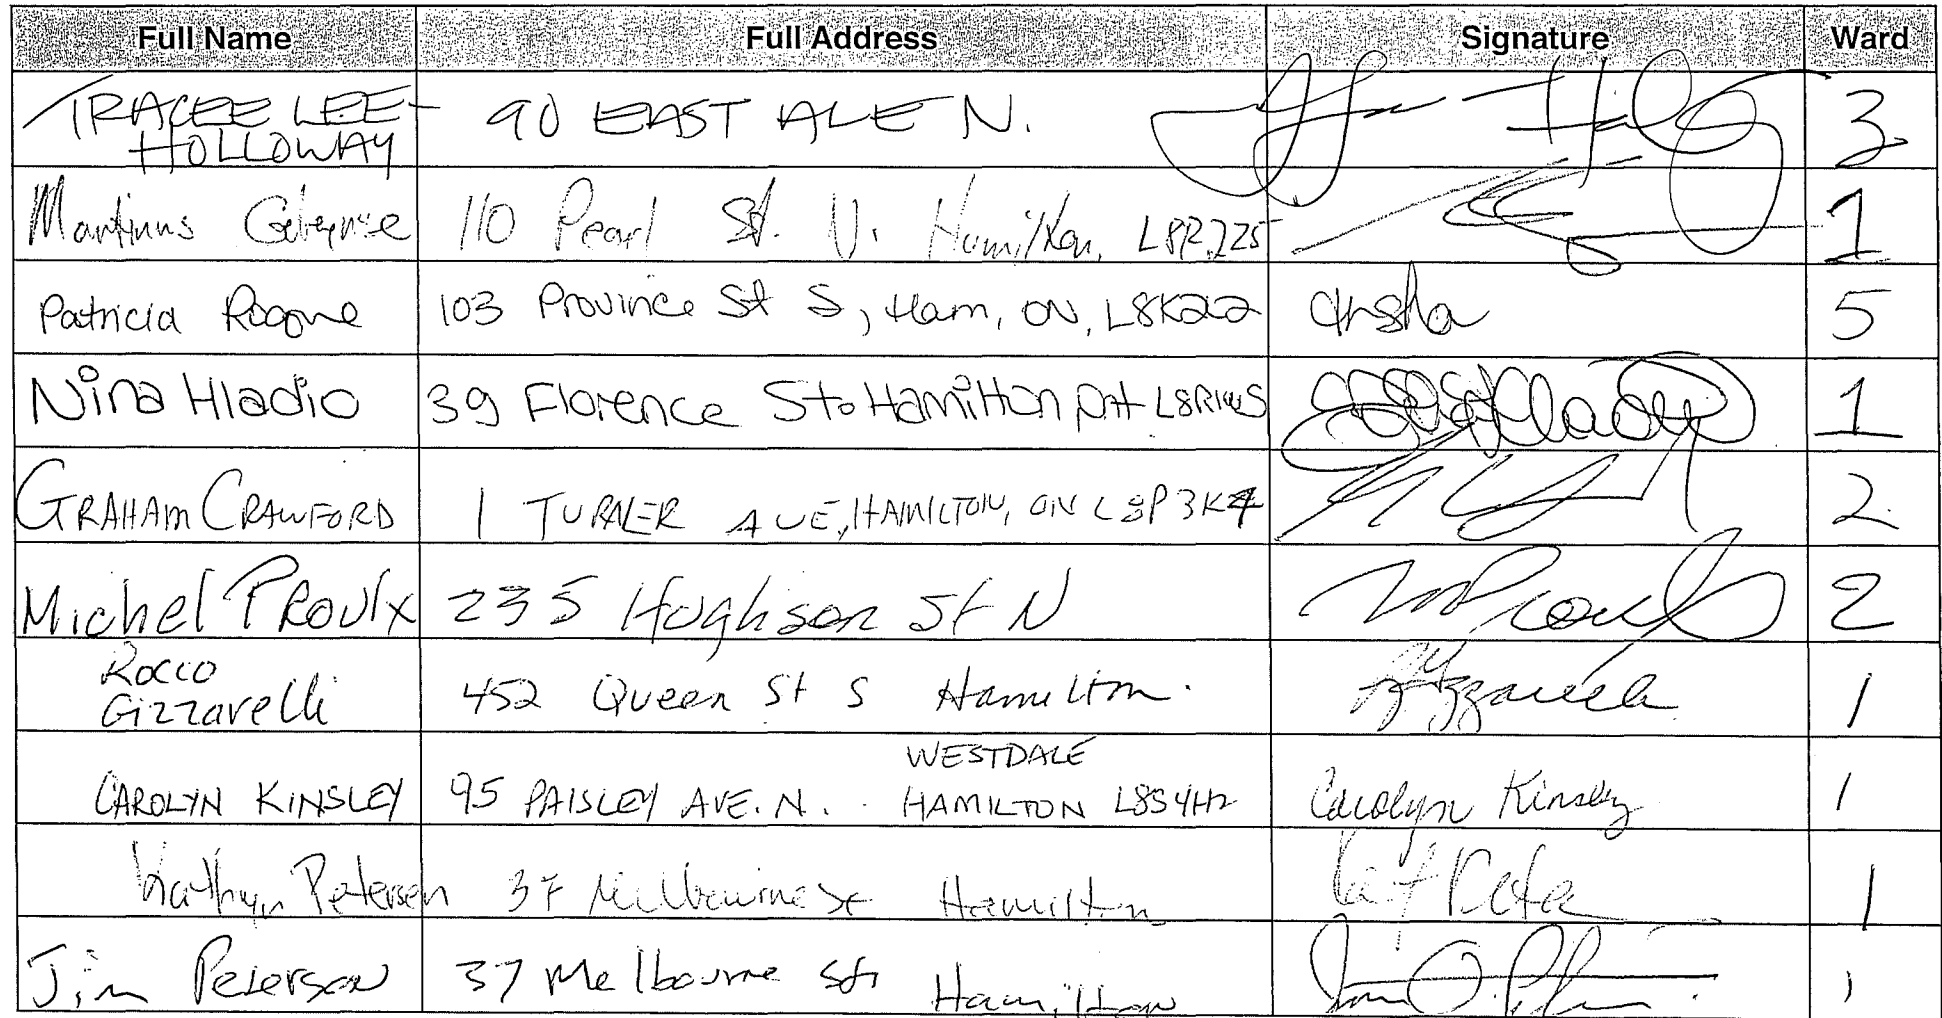 Full Name Full Address Signature Ward
TRACEE LEE- 90 EAST AVE N. 3
HOLLOWAY
Martinus 110 Pearl St. N. Hamilton, L8R 2Z5 1
Patricia 103 Province St S, Ham, ON, L8K2 5
Nina Hladio 39 Florence St. Hamilton Ont L8R1W5 1
GRAHAM CRAWFORD 1 TURNER AVE, HAMILTON, ON L8P 3K4 2
Michel PROulx 235 Hughson St N MProulx 2
Rocco
Gizzarelli 452 Queen St S Hamilton. 1
WESTDALE
CAROLYN KINSLEY 95 PAISLEY AVE. N. HAMILTON L8S4H2 Carolyn Kinsley 1
Kathryn Petersen 37 Melbourne St Hamilton 1
Jim Peterson 37 Melbourne St. Hamilton 1